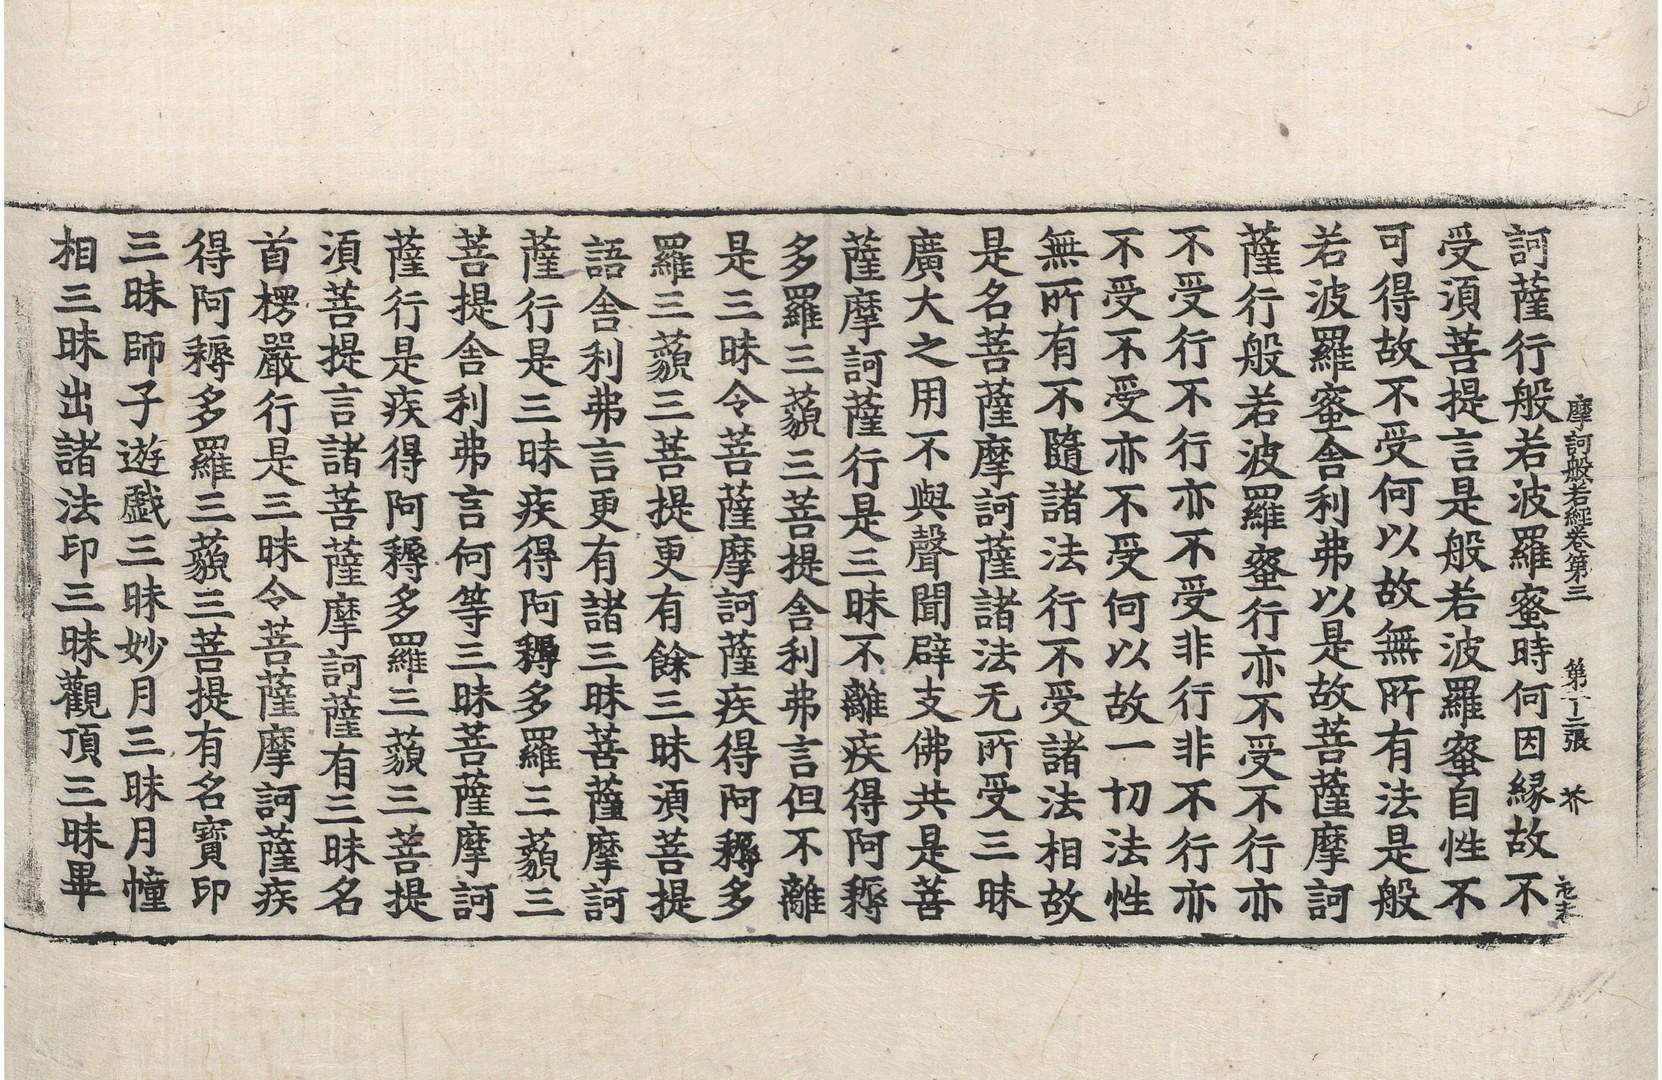 摩訶般若經卷第三　第十二張　芥
訶薩行般若波羅蜜時何因縁故不
受湏菩提言是般若波羅蜜自性不
可得故不受何以故無所有法是般
若波羅蜜舎利弗以是故菩薩摩訶
薩行般若波羅蜜行亦不受不行亦
不受行不行亦不受非行非不行亦
不受不受亦不受何以故一切法性
無所有不隨諸法行不受諸法相故
是名菩薩摩訶薩諸法无所受三昧
廣大之用不與聲聞辟支佛共是菩
薩摩訶薩行是三昧不離疾得阿耨
多羅三藐三菩提舎利弗言但不離
是三昧令菩薩摩訶薩疾得阿耨多
羅三藐三菩提更有餘三昧湏菩提
語舎利弗言更有諸三昧菩薩摩訶
薩行是三昧疾得阿耨多羅三藐三
菩提舎利弗言何等三昧菩薩摩訶
薩行是疾得阿耨多羅三藐三菩提
湏菩提言諸菩薩摩訶薩有三昧名
首楞嚴行是三昧令菩薩摩訶薩疾
得阿耨多羅三藐三菩提有名寳印
三昧師子遊戲三昧妙月三昧月幢
相三昧出諸法印三昧觀頂三昧畢